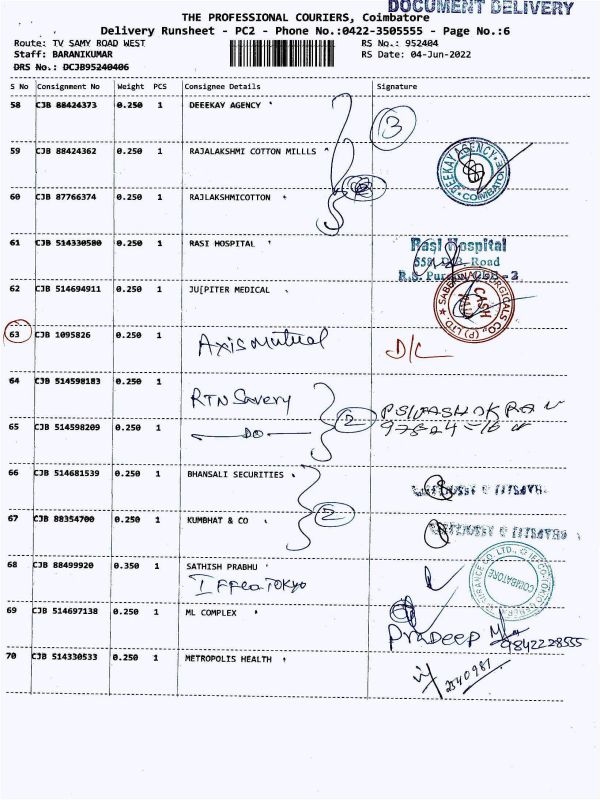 DOCUMENT DELIVERY
THE PROFESSIONAL COURIERS, Coimbatore
Delivery Runsheet - PC2 - Phone No.:0422-3505555 - Page No.:6
Route: TV SAMY ROAD WEST RS No.: 952404
Staff: BARANIKUMAR RS Date: 04-Jun-2022
DRS No.: DCJB95240406
S No Consignment No Weight PCS Consignee Details Signature
58 CJB 88424373 0.250 1 DEEEKAY AGENCY
3
59 CJB 88424362 0.250 1 RAJALAKSHMI COTTON MILLLS
DEEKAY AGENCY COIMBATORE
60 CJB 87766374 0.250 1 RAJLAKSHMICOTTON
61 CJB 514330580 0.250 1 RASI HOSPITAL
Rasi Hospital
Road
62 CJB 514694911 0.250 1 JU[PITER MEDICAL
CASH
63 CJB 1095826 0.250 1 Axis Mutual D/L
64 CJB 514598183 0.250 1 RTN Savery
2
65 CJB 514598209 0.250 1 DO
66 CJB 514681539 0.250 1 BHANSALI SECURITIES
2
67 CJB 88354700 0.250 1 KUMBHAT & CO
68 CJB 88499920 0.350 1 SATHISH PRABHU
Iffco TOKYO
COIMBATORE
69 CJB 514697138 0.250 1 ML COMPLEX
Pradeep
9842228555
70 CJB 514330533 0.250 1 METROPOLIS HEALTH
2540981